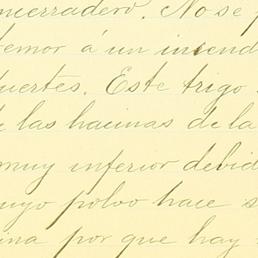 encerradero. No se p
temor á un incend
uertes. Este trigo
e las hacinas de la
muy inferior debid
uyo polvo hace s
ina por que hay